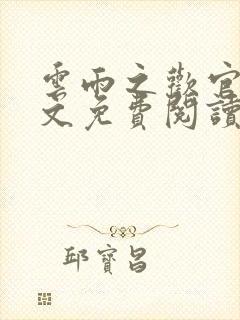 雲雨之歡官
文免費閱讀
邱寶昌